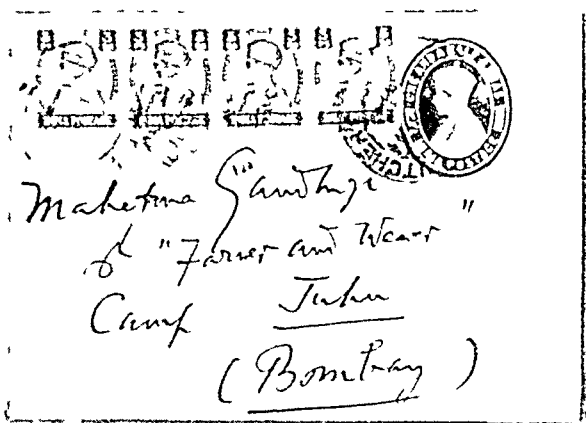 Mahatma Gandhiji
of "Farmer and Weaver"
Camp Juhu
(Bombay)